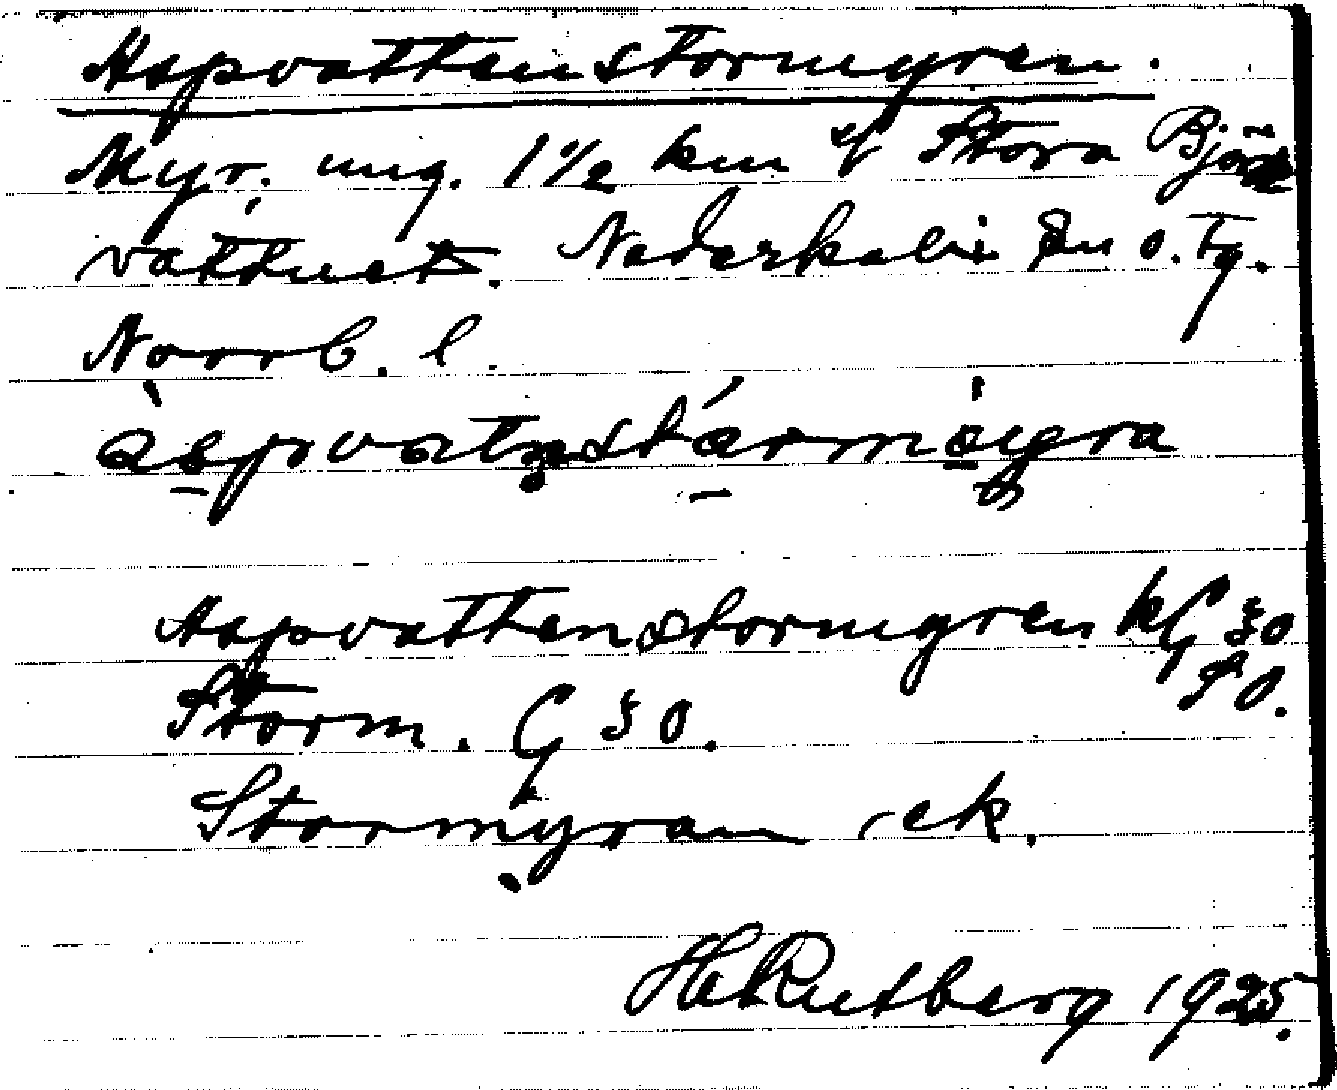 Aspvattenstormyren.
Myr, ung. 1 1/2 km Stora Björn
vattnet. Nederkalix sn o. tg.
Norrb. l.
Aspvattenstormyren kG 50
SO.
Storm. G 50.
Stormyran ek.
H Rutberg 1925.